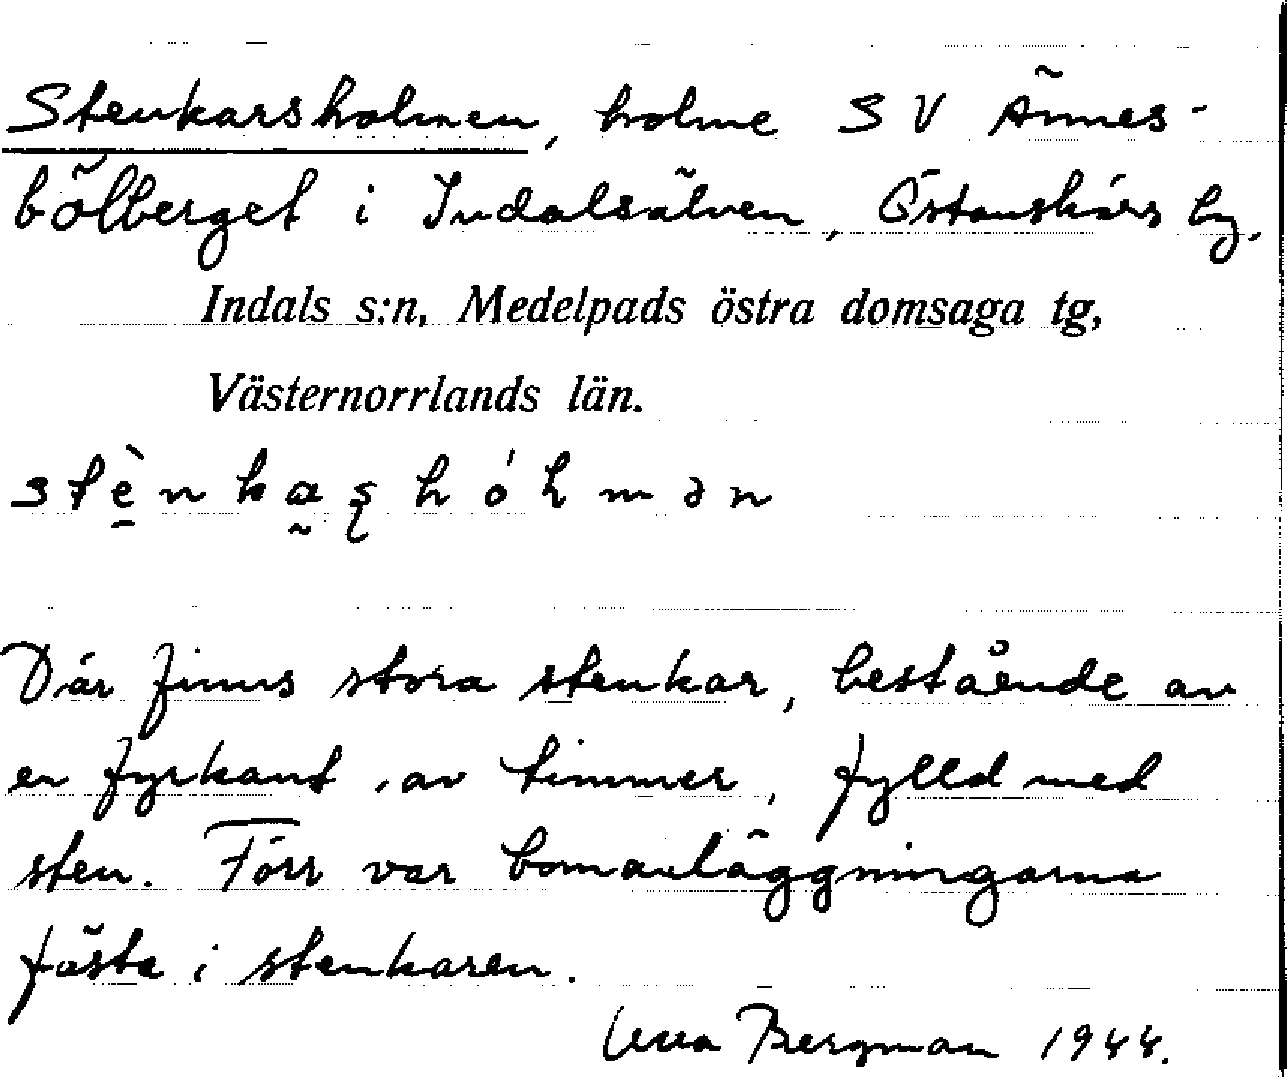 Stenkarsholmen, holme SV Ännes-
bölberget i Indalsälven, Östanskärs by.
Indals s:n, Medelpads östra domsaga tg,
Västernorrlands län.
stè̠nka̰ʂhóɫmən
Där finns stora stenkar, bestående av
en fyrkant av timmer, fylld med
sten. Förr var bomanläggningarna
fästa i stenkaren.
Bergman 1944.